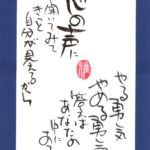 やる勇気
やめる勇気
答えは
あなたの
にある
心の声に
聞いてみて
きっと
自分が見えるから